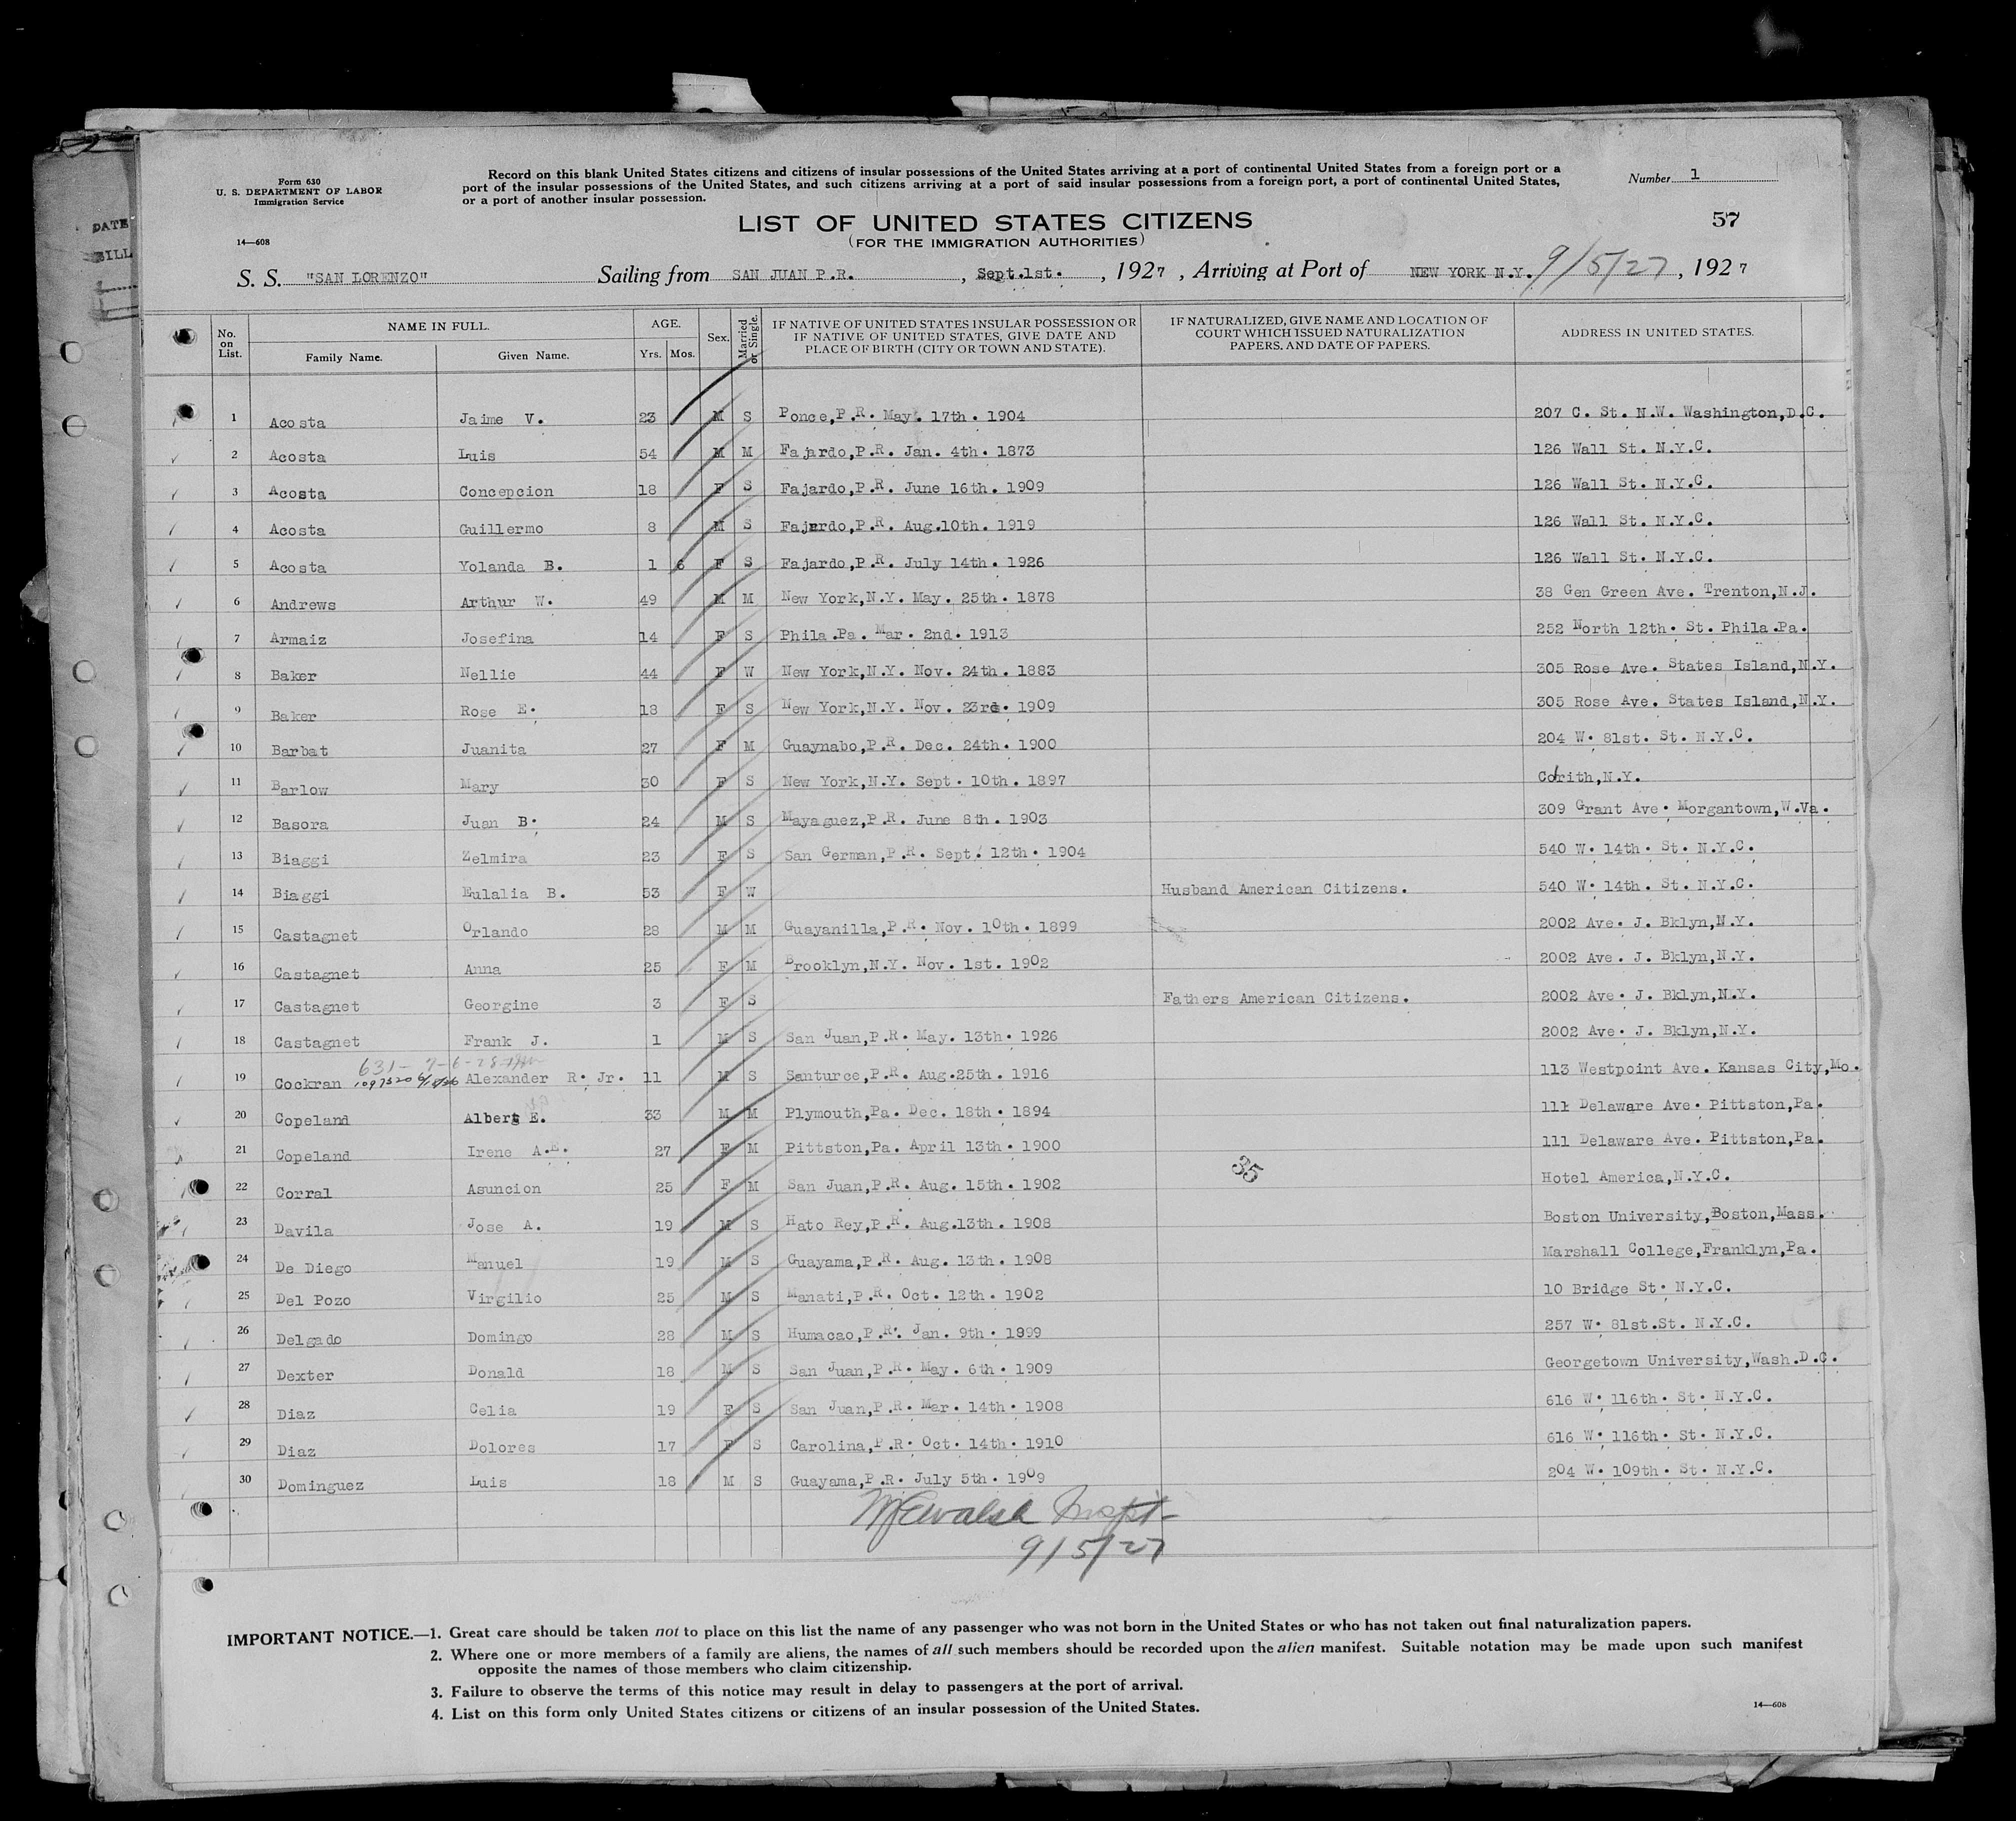 Form 630
U. S. DEPARTMENT OF LABOR
Immigration Service
14—608
Record on this blank United States citizens and citizens of insular possessions of the United States arriving at a port of continental United States from a foreign port or a
port of the insular possessions of the United States, and such citizens arriving at a port of said insular possessions from a foreign port, a port of continental United States,
or a port of another insular possession.
Number 1
LIST OF UNITED STATES CITIZENS
(FOR THE IMMIGRATION AUTHORITIES)
57
DATE
BILL
S. S. "SAN LORENZO" Sailing from SAN JUAN P.R. , Sept.1st. , 1927 , Arriving at Port of NEW YORK N.Y. 9/5/27 , 1927
No. on List. NAME IN FULL. AGE. Sex. Married or Single. IF NATIVE OF UNITED STATES INSULAR POSSESSION OR IF NATIVE OF UNITED STATES, GIVE DATE AND PLACE OF BIRTH (CITY OR TOWN AND STATE). IF NATURALIZED, GIVE NAME AND LOCATION OF COURT WHICH ISSUED NATURALIZATION PAPERS, AND DATE OF PAPERS. ADDRESS IN UNITED STATES.
Family Name. Given Name. Yrs. Mos.
1 Acosta Jaime V. 23 M S Ponce,P.R. May. 17th. 1904 207 C. St. N.W. Washington,D.C.
2 Acosta Luis 54 M M Fajardo,P.R. Jan. 4th. 1873 126 Wall St. N.Y.C.
3 Acosta Concepcion 18 F S Fajardo,P.R. June 16th. 1909 126 Wall St. N.Y.C.
4 Acosta Guillermo 8 M S Fajardo,P.R. Aug.10th. 1919 126 Wall St. N.Y.C.
5 Acosta Yolanda B. 1 6 F S Fajardo,P.R. July 14th. 1926 126 Wall St. N.Y.C.
6 Andrews Arthur W. 49 M M New York,N.Y. May. 25th. 1878 38 Gen Green Ave. Trenton,N.J.
7 Armaiz Josefina 14 F S Phila.Pa. Mar. 2nd. 1913 252 North 12th. St. Phila.Pa.
8 Baker Nellie 44 F W New York,N.Y. Nov. 24th. 1883 305 Rose Ave. States Island,N.Y.
9 Baker Rose E. 18 F S New York,N.Y. Nov. 23rd. 1909 305 Rose Ave. States Island,N.Y.
10 Barbat Juanita 27 F M Guaynabo,P.R. Dec. 24th. 1900 204 W. 81st. St. N.Y.C.
11 Barlow Mary 30 F S New York,N.Y. Sept. 10th. 1897 Corith,N.Y.
12 Basora Juan B. 24 M S Mayaguez,P.R. June 8th. 1903 309 Grant Ave. Morgantown,W.Va.
13 Biaggi Zelmira 23 F S San German,P.R. Sept. 12th. 1904 540 W. 14th. St. N.Y.C.
14 Biaggi Eulalia B. 53 F W Husband American Citizens. 540 W. 14th. St. N.Y.C.
15 Castagnet Orlando 28 M M Guayanilla,P.R. Nov. 10th. 1899 2002 Ave. J. Bklyn,N.Y.
16 Castagnet Anna 25 F M Brooklyn,N.Y. Nov. 1st. 1902 2002 Ave. J. Bklyn,N.Y.
17 Castagnet Georgine 3 F S Fathers American Citizens. 2002 Ave. J. Bklyn,N.Y.
18 Castagnet Frank J. 1 M S San Juan,P.R. May. 13th. 1926 2002 Ave. J. Bklyn,N.Y.
631-
19 Cockran Alexander R. Jr. 11 M S Santurce,P.R. Aug.25th. 1916 113 Westpoint Ave. Kansas City,Mo.
20 Copeland Albert E. 33 M M Plymouth,Pa. Dec. 18th. 1894 111 Delaware Ave. Pittston,Pa.
21 Copeland Irene A.E. 27 F M Pittston,Pa. April 13th. 1900 111 Delaware Ave. Pittston,Pa.
35
22 Corral Asuncion 25 F M San Juan,P.R. Aug. 15th. 1902 Hotel America,N.Y.C.
23 Davila Jose A. 19 M S Hato Rey,P.R. Aug.13th. 1908 Boston University,Boston,Mass.
24 De Diego Manuel 19 M S Guayama,P.R. Aug. 13th. 1908 Marshall College,Franklyn,Pa.
25 Del Pozo Virgilio 25 M S Manati,P.R. Oct. 12th. 1902 10 Bridge St. N.Y.C.
26 Delgado Domingo 28 M S Humacao,P.R. Jan. 9th. 1999 257 W. 81st.St. N.Y.C.
27 Dexter Donald 18 M S San Juan,P.R. May. 6th. 1909 Georgetown University,Wash.D.C.
28 Diaz Celia 19 F S San Juan,P.R. Mar. 14th. 1908 616 W. 116th. St. N.Y.C.
29 Diaz Dolores 17 F S Carolina,P.R. Oct. 14th. 1910 616 W. 116th. St. N.Y.C.
30 Dominguez Luis 18 M S Guayama,P.R. July 5th. 1909 204 W. 109th. St. N.Y.C.
Walsh Inspt-
9/5/27
IMPORTANT NOTICE.—1. Great care should be taken not to place on this list the name of any passenger who was not born in the United States or who has not taken out final naturalization papers.
2. Where one or more members of a family are aliens, the names of all such members should be recorded upon the alien manifest. Suitable notation may be made upon such manifest
opposite the names of those members who claim citizenship.
3. Failure to observe the terms of this notice may result in delay to passengers at the port of arrival.
4. List on this form only United States citizens or citizens of an insular possession of the United States.
14—608